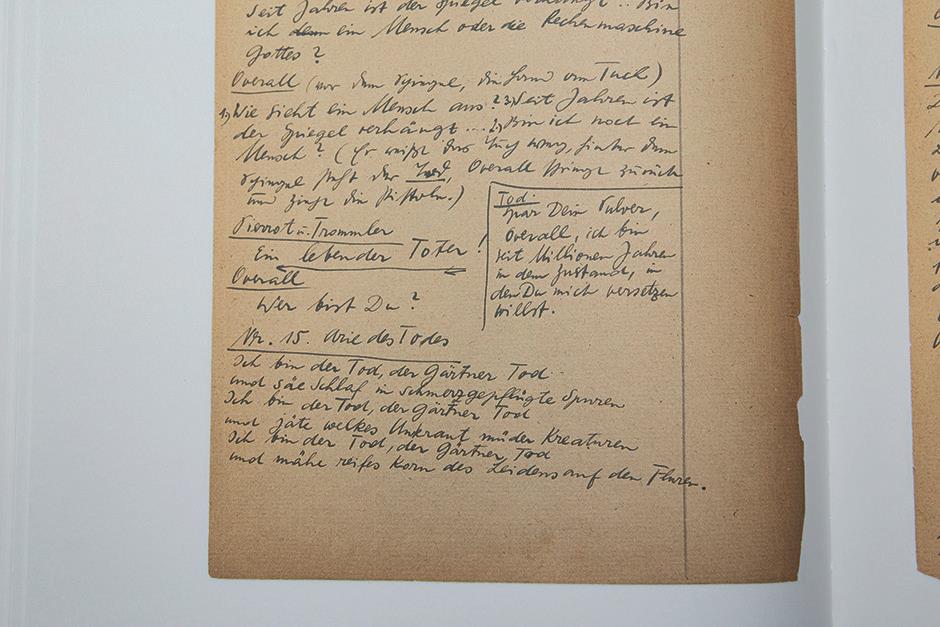 Seit Jahren ist der Spiegel verhängt .. Bin
ich denn ein Mensch oder die Rechenmaschine
Gottes?
Overall (vor dem Spiegel, die Hand am Tuch)
1) Wie sieht ein Mensch aus? 3) Seit Jahren ist
der Spiegel verhängt ... 2) Bin ich noch ein
Mensch? (Er reißt das Tuch weg, hinter dem
Spiegel steht der Tod, Overall springt zurück
und zieht die Pistole.)
Pierrot u. Trommler
Ein lebender Toter!
Overall
Wer bist Du?
Tod:
Spar Dein Pulver,
Overall, ich bin
seit Millionen Jahren
in dem Zustand, in
den Du mich versetzen
willst.
Nr. 15. Arie des Todes
Ich bin der Tod, der Gärtner Tod
und säe Schlaf in schmerzgepflügte Spuren
Ich bin der Tod, der Gärtner Tod
und jäte welkes Unkraut müder Kreaturen
Ich bin der Tod, der Gärtner Tod
und mähe reifes Korn des Leidens auf den Fluren.